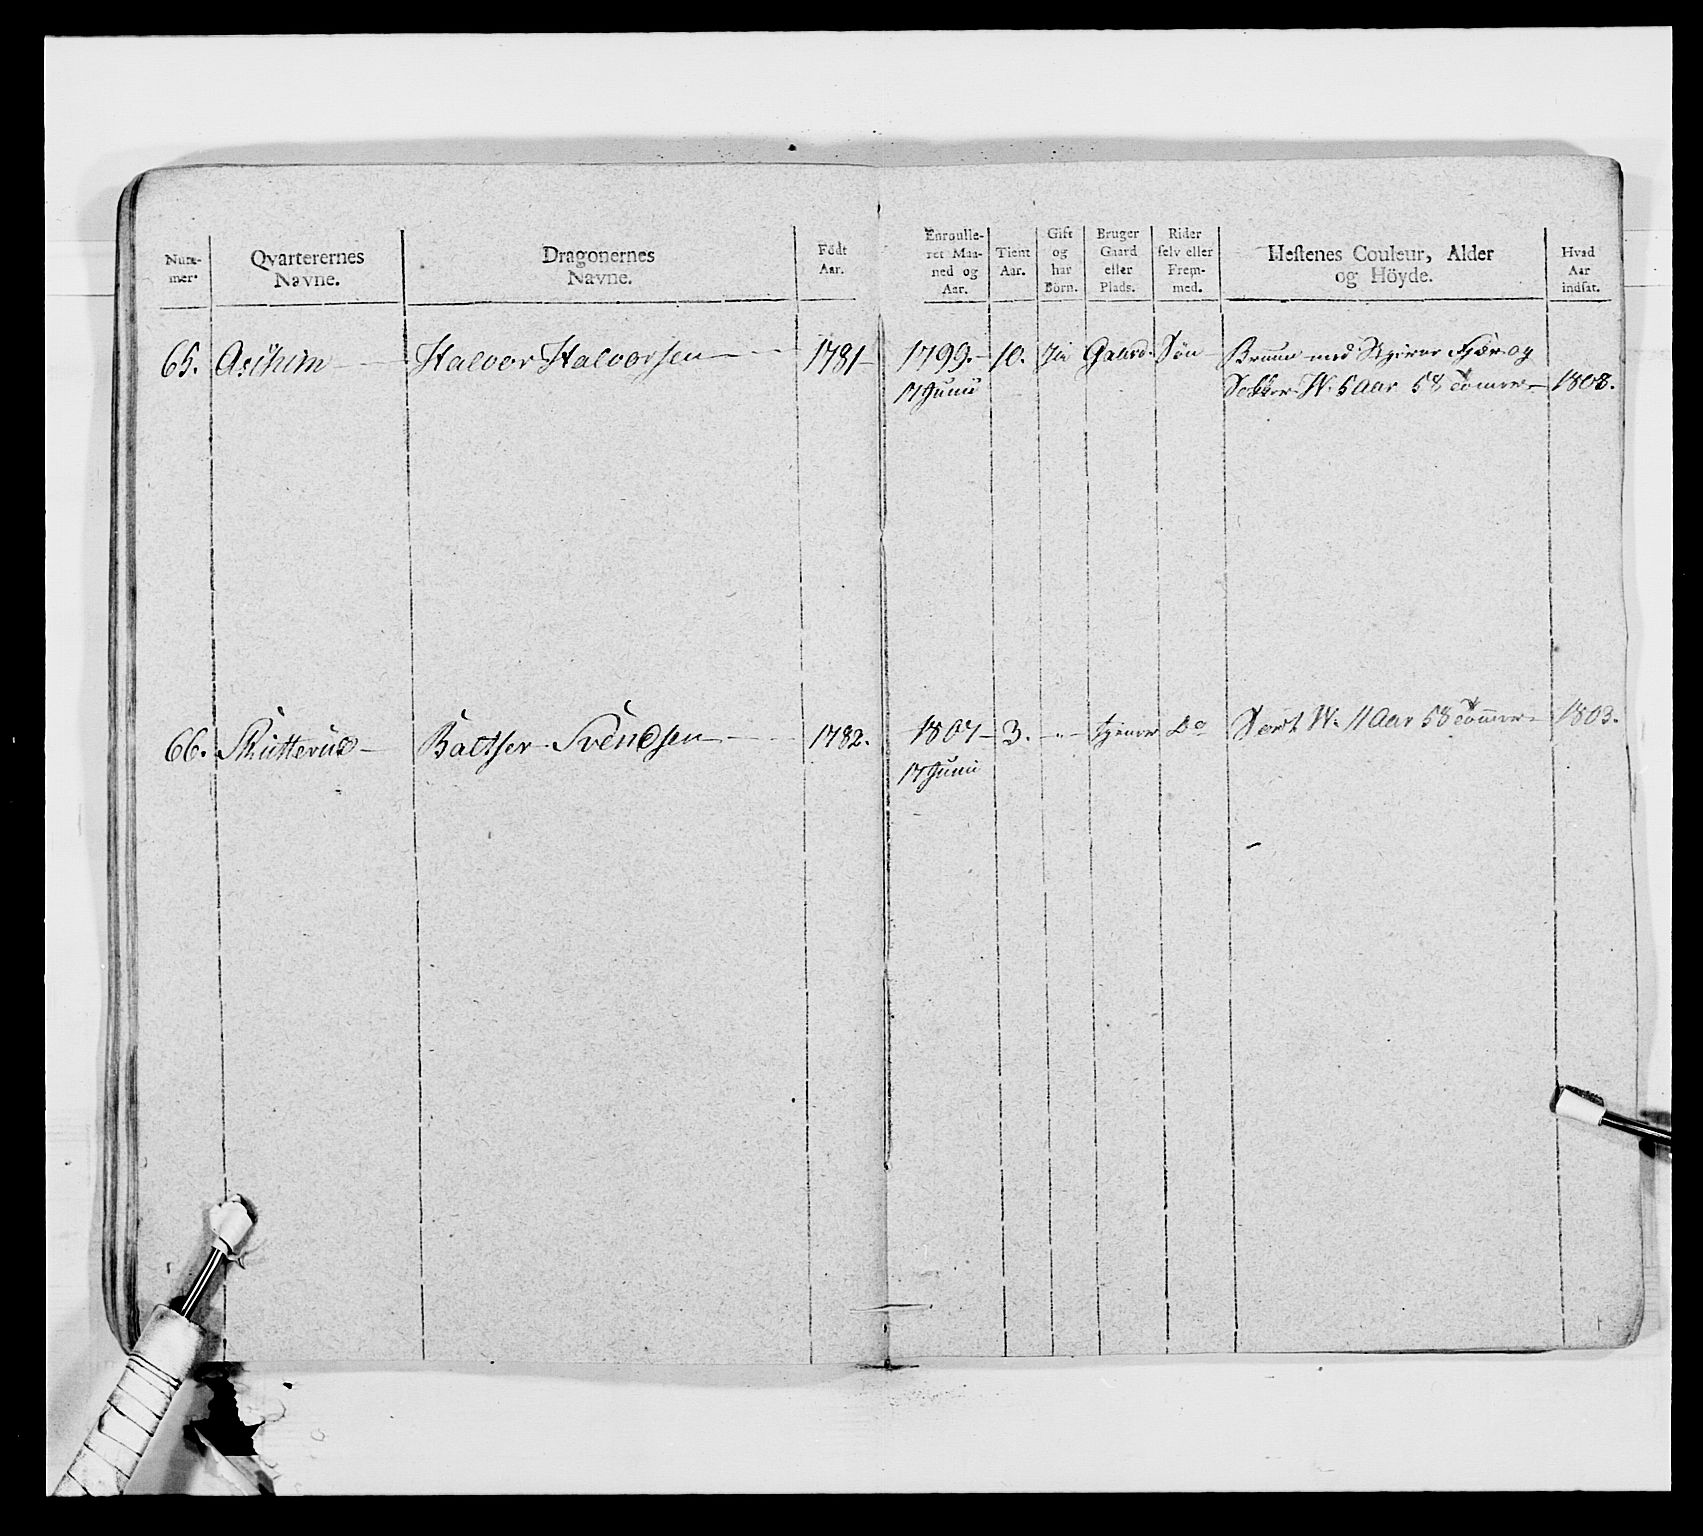 Num-
mer.
Qvarterernes
Navne.
Dragonernes
Navne.
Födt
Aar.
Enroulle-
ret Maa-
ned og
Aar.
Tient
Aar.
Gift
og
har
Börn.
Bruger
Gaard
eller
Plads.
Rider
selv eller
Frem-
med.
Hestenes Couleur, Alder
og Höyde.
Hvad
Aar
indsat.
65. Askhim Halvor Halvorsen 1781 1799. 10. Ja Gaard. Søn Bruun med Fjær og
17 Juni Sokker W. 5 Aar 58 Tomer 1808.
66. Skutterud Baltser Svendsen 1782. 1807 3. " tjener Do Sort W. 11 Aar 58 Tommer 1803.
17 Juni